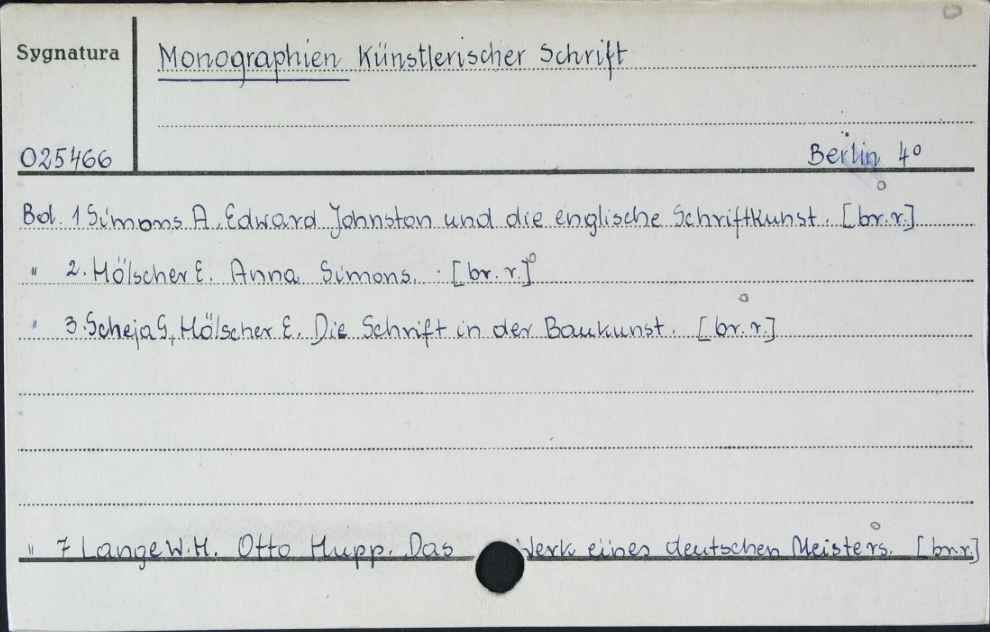 Sygnatura
Monographien Künstlerischer Schrift
025466
Berlin 4º
Bd. 1 Simons A. Edward Johnston und die englische Schriftkunst. [br. r.]
" 2. Hölscher E. Anna Simons. [br. r.]
" 3. Scheja G, Hölscher E. Die Schrift in der Baukunst. [br. r.]
" 7 Lange W.H. Otto Hupp. Das Werk eines deutschen Meisters. [br. r.]